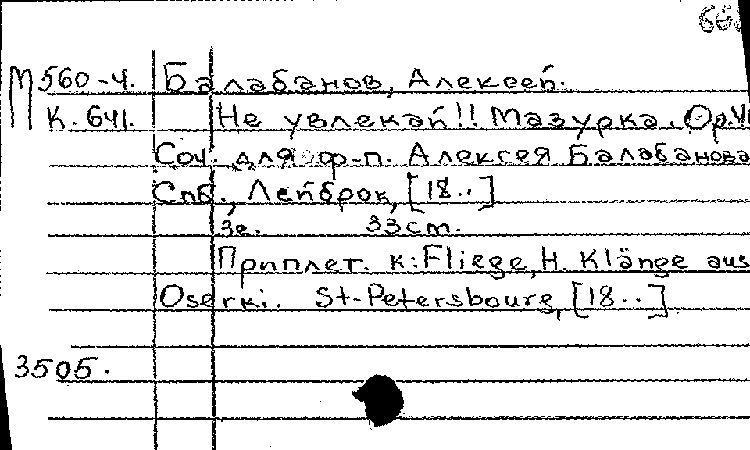 М 560-4. Балабанов, Алексей.
К. 641. Не увлекай!! Мазурка. Op.
Соч. для ф-п. Алексея Балабанова
Спб., Лейброк, [18..]
3с. 33cm.
Приплет. к: Fliege, H. Klänge aus
Oserki. St-Petersbourg, [18..]
3505.